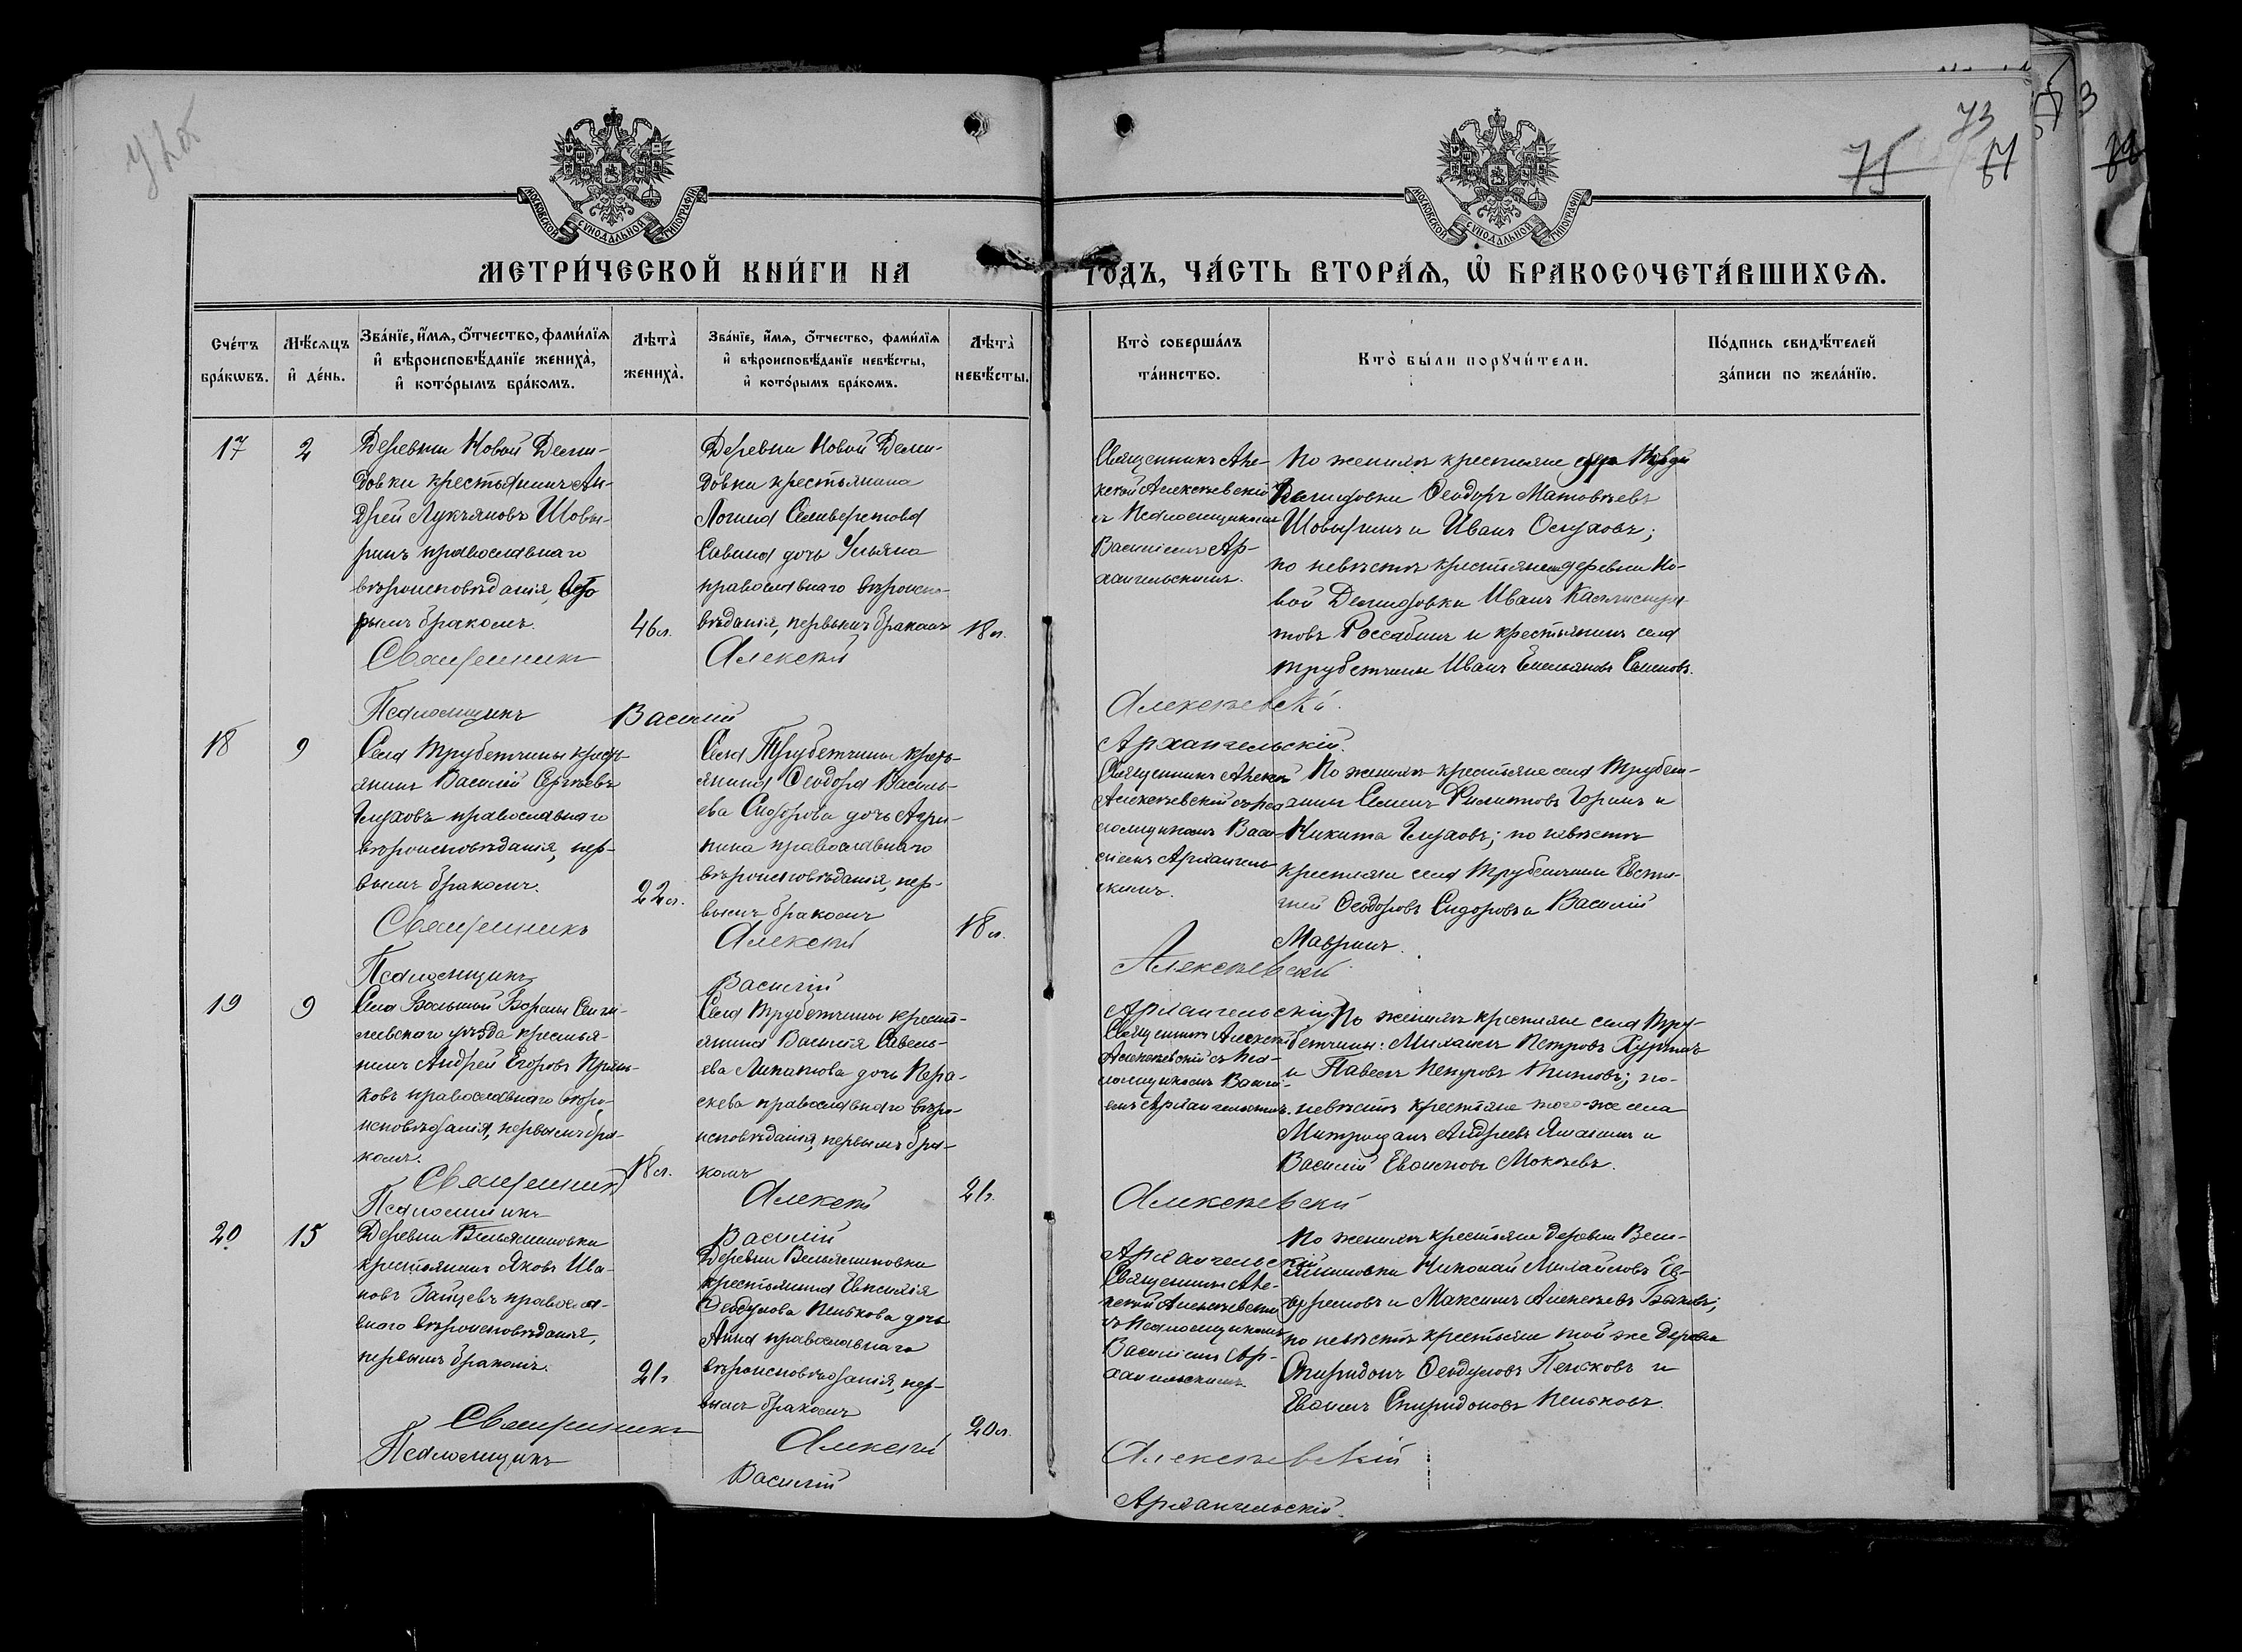 72об
73
75
67
3
МОСКОВСКОЙ СѴНОДАЛЬНОЙ ТИПОГРАФІИ
МОСКОВСКОЙ СѴНОДАЛЬНОЙ ТИПОГРАФІИ
МЕТРИ́ЧЕСКОЙ КНИ́ГИ НА ГОДЪ, ЧА́СТЬ ВТОРА́Я, Ѡ҆ БРАКОСОЧЕТА́ВШИХСЯ.
Сче́тъ бра́кѡвъ.
Мѣ́сяцъ и҆ де́нь.
Зва́нїе, и҆́мя, ѻ҆́тчество, фами́лїя и҆ вѣроисповѣ́данїе жениха̀, и҆ кото́рымъ бра́комъ.
Лѣта̀ жениха̀.
Зва́нїе, и҆́мя, ѻ҆́тчество, фами́лїя и҆ вѣроисповѣ́данїе невѣ́сты, и҆ кото́рымъ бра́комъ.
Лѣта̀ невѣ́сты.
Кто̀ соверша́лъ та́инство.
Кто̀ бы́ли порꙋчи́тели.
По́дпись свидѣ́телей за́писи по жела́нїю.
17
2
Деревни Новой Деми-
довки крестьянинъ Ан-
дрей Лукьяновъ Шовы-
ринъ православнаго
вѣроисповѣданія, вто
рымъ бракомъ.
46 л.
Деревни Новой Деми-
довки крестьянина
Логина Селиверстова
Савина дочь Ульяна
православнаго вѣроиспо-
вѣданія, первымъ бракомъ
18 л.
Священникъ Але-
ксѣй Алексѣевскій
съ Псаломщикомъ
Василіемъ Ар-
хангельскимъ.
По женихѣ крестьяне дер. Новой
Демидовки Ѳеодоръ Матвѣевъ
Шовыринъ и Иванъ Осиповъ;
по невѣстѣ крестьяне деревни Но-
вой Демидовки Иванъ
товъ Россабинъ и крестьянинъ села
Трубетчины Иванъ Емельяновъ Семеновъ.
Священникъ Алексѣй Алексѣевскій.
Псаломщикъ Василій Архангельскій.
18
9
Села Трубетчины кресть-
янинъ Василій Сергѣевъ
Глуховъ православнаго
вѣроисповѣданія, пер-
вымъ бракомъ.
22 л.
Села Трубетчины кресть-
янина Ѳеодора Василь-
ева Сидорова дочь Агри-
пина православнаго
вѣроисповѣданія, пер-
вымъ бракомъ
18 л.
Священникъ Алексѣй
Алексѣевскій съ пса-
ломщикомъ Васи-
ліемъ Архангель-
скимъ.
По женихѣ крестьяне села Трубет-
чины Семенъ Филиповъ Горинъ и
Никита Глуховъ; по невѣстѣ
крестьяне села Трубетчины Евстиг-
ней Ѳеодоровъ Сидоровъ и Василій
Мавринъ.
Священникъ Алексѣй Алексѣевскій.
Псаломщикъ Василій Архангельскій
19
9
Села Большой Борлы Сенги-
леевскаго уѣзда крестья-
нинъ Андрей Егоровъ Прян-
ковъ православнаго вѣро-
исповѣданія, первымъ бра-
комъ.
18 л.
Села Трубетчины кресть-
янина Василія Савель-
ева Липатова дочь Пара-
скева православнаго вѣро-
исповѣданія, первымъ бра-
комъ
21 г.
Священникъ Алексѣй
Алексѣевскій съ Пса-
ломщикомъ Васил-
емъ Архангельскимъ.
По женихѣ крестьяне села Тру-
бетчины: Михаилъ Петровъ
и Павелъ Петровъ Титовъ; по
невѣстѣ крестьяне того-же села
Митрофанъ Андреевъ и
Василій Евдокимовъ Мокѣевъ.
Священникъ Алексѣй Алексѣевскій
Псаломщикъ Василій Архангельскій
20
15
Деревни Вельяминовки
крестьянинъ Яковъ Ива-
новъ Зайцевъ православ-
наго вѣроисповѣданія,
первымъ бракомъ.
21 г.
Деревни Вельяминовки
крестьянина Евксилія
Ѳеодулова Пенькова дочь
Анна православнаго
вѣроисповѣданія, пер-
вымъ бракомъ
20 л.
Священникъ Але-
ксѣй Алексѣевскій
съ Псаломщикомъ
Василіемъ Ар-
хангельскимъ
По женихѣ крестьяне деревни Вель-
яминовки Николай Михайловъ Еф-
ремовъ и Максимъ Алексѣевъ Быковъ;
по невѣстѣ крестьяне той же деревни
Спиридонъ Ѳеодуловъ Пеньковъ и
Евдокимъ Спиридоновъ Пеньковъ.
Священникъ Алексѣй Алексѣевскій
Псаломщикъ Василій Архангельскій.